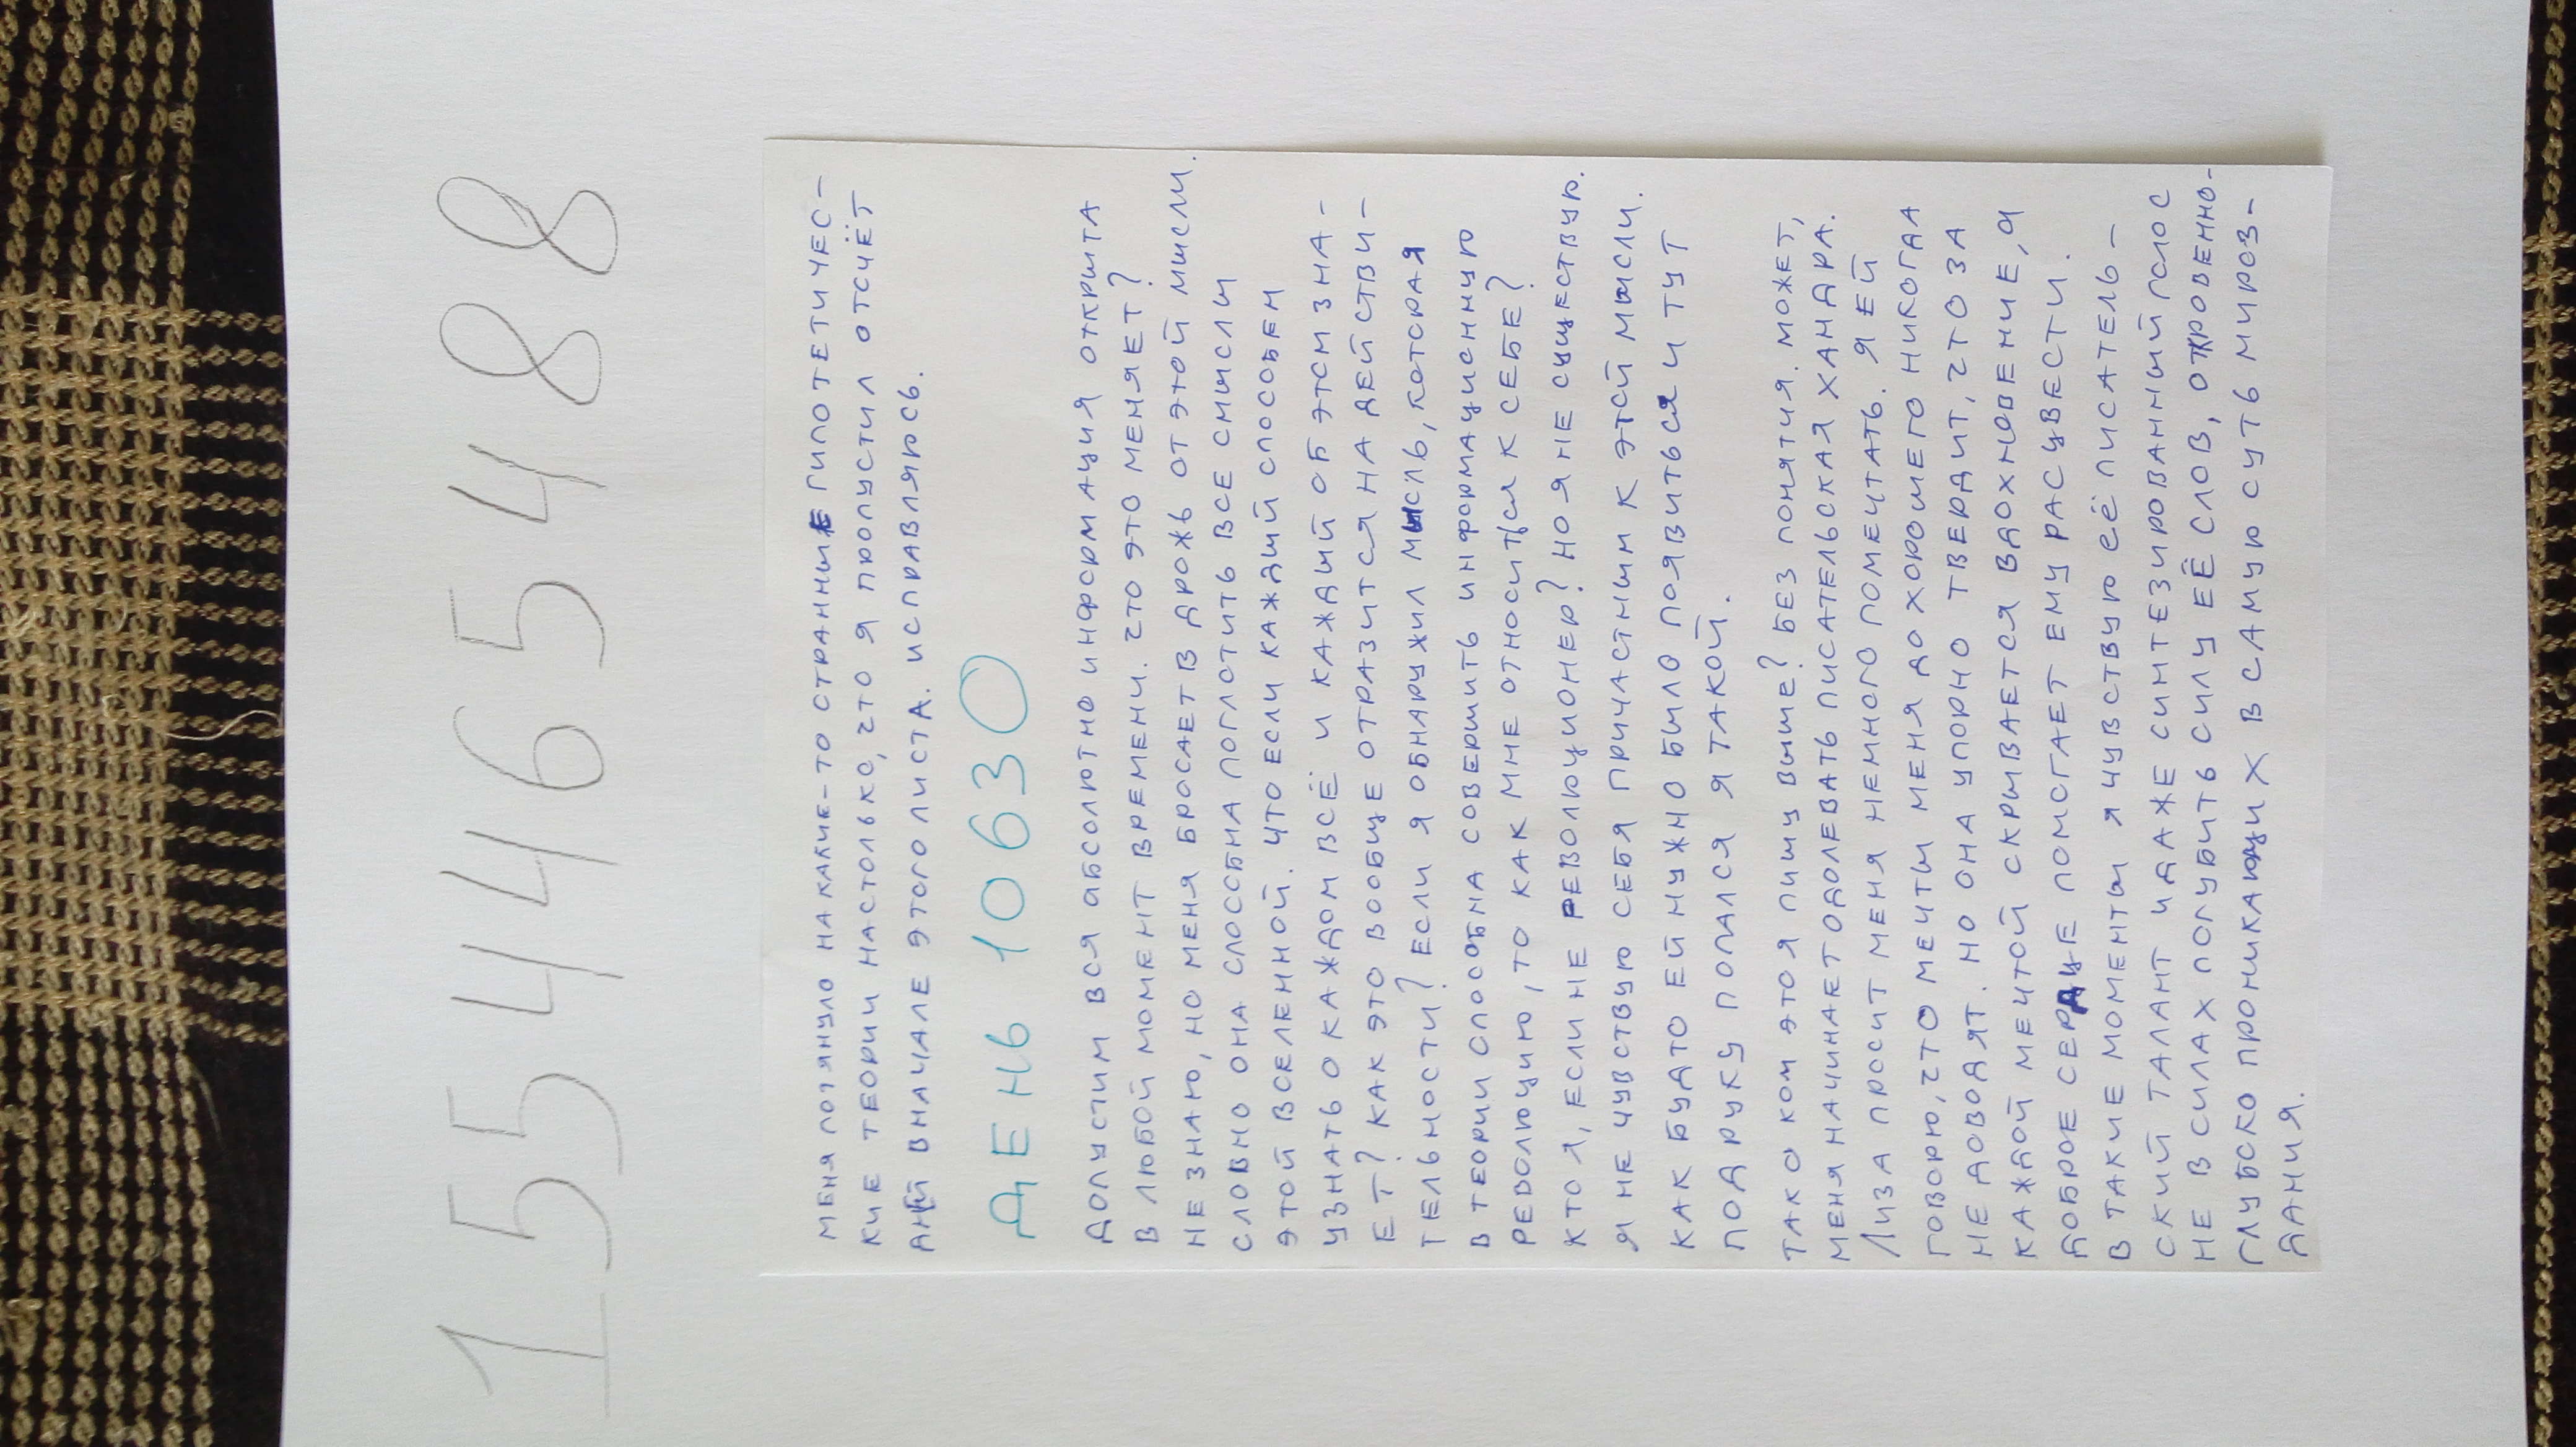 1554465488
МЕНЯ ПОТЯНУЛО НА КАКИЕ-ТО СТРАННЫЕ ГИПОТЕТИЧЕС-
КИЕ ТЕОРИИ НАСТОЛЬКО, ЧТО Я ПРОПУСТИЛ ОТСЧЁТ
ДНЕЙ ВНАЧАЛЕ ЭТОГО ЛИСТА. ИСПРАВЛЯЮСЬ.
ДЕНЬ 10630
ДОПУСТИМ ВСЯ АБСОЛЮТНО ИНФОРМАЦИЯ ОТКРЫТА
В ЛЮБОЙ МОМЕНТ ВРЕМЕНИ. ЧТО ЭТО МЕНЯЕТ?
НЕ ЗНАЮ, НО МЕНЯ БРОСАЕТ В ДРОЖЬ ОТ ЭТОЙ МЫСЛИ.
СЛОВНО ОНА СПОСОБНА ПОГЛОТИТЬ ВСЕ СМЫСЛЫ
ЭТОЙ ВСЕЛЕННОЙ. ЧТО ЕСЛИ КАЖДЫЙ СПОСОБЕН
УЗНАТЬ О КАЖДОМ ВСЁ И КАЖДЫЙ ОБ ЭТОМ ЗНА-
ЕТ? КАК ЭТО ВООБЩЕ ОТРАЗИТСЯ НА ДЕЙСТВИ-
ТЕЛЬНОСТИ? ЕСЛИ Я ОБНАРУЖИЛ МЫСЛЬ, КОТОРАЯ
В ТЕОРИИ СПОСОБНА СОВЕРШИТЬ ИНФОРМАЦИОННУЮ
РЕВОЛЮЦИЮ, ТО КАК МНЕ ОТНОСИТЬСЯ К СЕБЕ?
КТО Я, ЕСЛИ НЕ РЕВОЛЮЦИОНЕР? НО Я НЕ СУЩЕСТВУЮ.
Я НЕ ЧУВСТВУЮ СЕБЯ ПРИЧАСТНЫМ К ЭТОЙ МЫСЛИ.
КАК БУДТО ЕЙ НУЖНО БЫЛО ПОЯВИТЬСЯ И ТУТ
ПОД РУКУ ПОПАЛСЯ Я ТАКОЙ.
ТАК О КОМ ЭТО Я ПИШУ ВЫШЕ? БЕЗ ПОНЯТИЯ. МОЖЕТ,
МЕНЯ НАЧИНАЕТ ОДОЛЕВАТЬ ПИСАТЕЛЬСКАЯ ХАНДРА.
ЛИЗА ПРОСИТ МЕНЯ НЕМНОГО ПОМЕЧТАТЬ. Я ЕЙ
ГОВОРЮ, ЧТО МЕЧТЫ МЕНЯ ДО ХОРОШЕГО НИКОГДА
НЕ ДОВОДЯТ. НО ОНА УПОРНО ТВЕРДИТ, ЧТО ЗА
КАЖДОЙ МЕЧТОЙ СКРЫВАЕТСЯ ВДОХНОВЕНИЕ, А
ДОБРОЕ СЕРДЦЕ ПОМОГАЕТ ЕМУ РАСЦВЕСТИ.
В ТАКИЕ МОМЕНТЫ Я ЧУВСТВУЮ ЕЁ ПИСАТЕЛЬ-
СКИЙ ТАЛАНТ И ДАЖЕ СИНТЕЗИРОВАННЫЙ ГОЛОС
НЕ В СИЛАХ ПОГУБИТЬ СИЛУ ЕЁ СЛОВ, ОТКРОВЕННО-
ГЛУБОКО ПРОНИКАЮЩИХ В САМУЮ СУТЬ МИРОЗ-
ДАНИЯ.